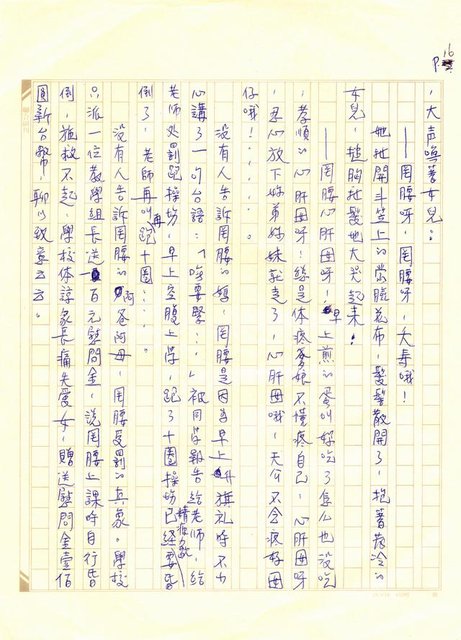 P.16
，大声喚著女兒：
——罔腰呀，罔腰呀，夭壽哦！
她扯開斗笠上的花布，髮髻散開了，抱著冷的
女兒，搥胸扯髮地大哭起來！
——罔腰心肝囝呀，早上煎的蛋叫妳吃了怎么也没吃
，孝順的心肝囝呀！總是体疼爹娘不懂疼自己，心肝囝呀
，忍心放下妳弟妹就走了，心肝囝哦，天公不会疼好囝
仔哦！……
没有人告訴罔腰的媽，罔腰是因為早上升旗礼時不小
心講了一句台語：「嘜要學…」被同學報告給老師，給
老師处罰跑操場，早上空腹上學，跑了十圈操場已經要昏
倒了，老師再叫再跑十圈……。
没有人告訴罔腰的阿爸阿母，罔腰受罰的真象。學校
只派一位教學組長送一百元慰問金，說罔腰上課時自行昏
倒，施救不起，學校体諒家長痛失爱女，贈送慰問金壹佰
圓新台幣，聊以致意云云。